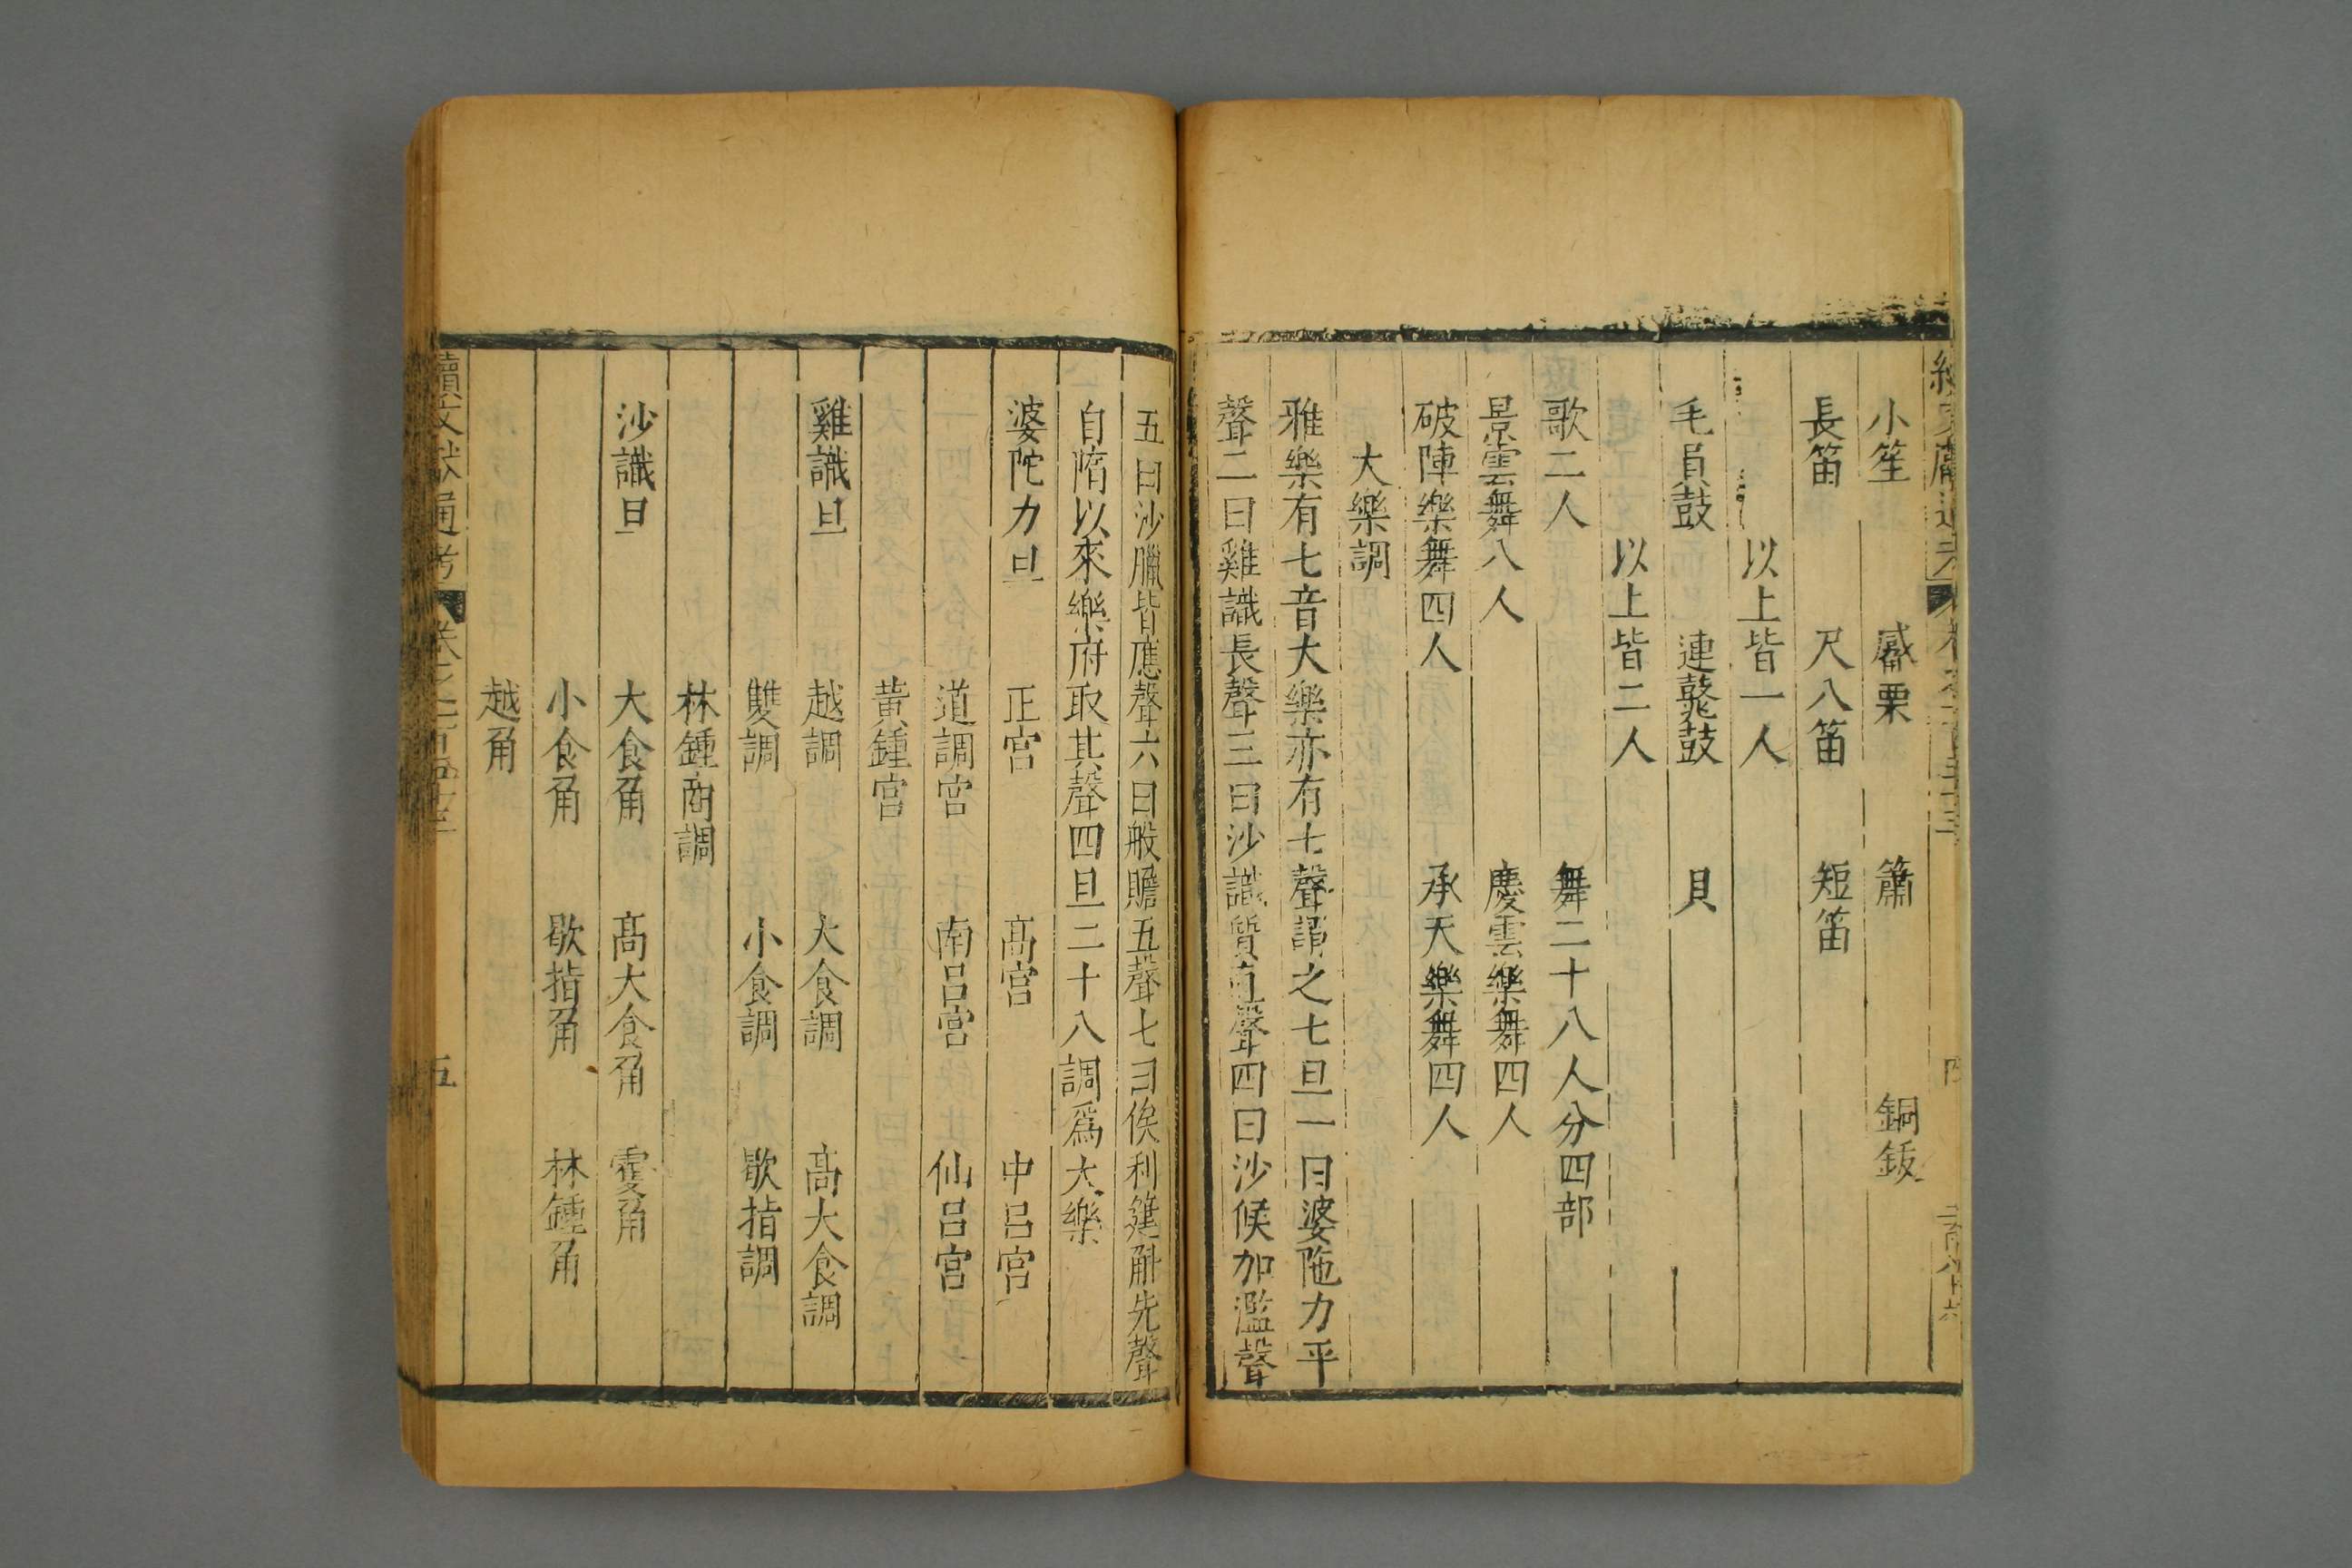 小笙 觱栗 簫 銅鈸
長笛 尺八笛 短笛
以上皆一人
毛員鼓 連鼗鼓 貝
以上皆二人
歌二人 舞二十八人分四部
景雲舞八人 慶雲樂舞四人
破陣樂舞四人 承天樂舞四人
大樂調
雅樂有七音大樂亦有七聲謂之七旦一曰婆陁力平
聲二曰雞識長聲三曰沙識質直聲四曰沙候加濫聲
五曰沙臘皆應聲六曰般贍五聲七曰俟利箑斛先聲
自隋以來樂府取其聲四旦二十八調爲大樂
婆陀力旦 正宮 高宮 中呂宮
道調宮 南呂宮 仙呂宮
黃鍾宮
雞識旦 越調 大食調 高大食調
雙調 小食調 歇指調
林鍾商調
沙識旦 大食角 高大食角 䨇角
小食角 歇指角 林鍾角
越角
續文獻通考 五